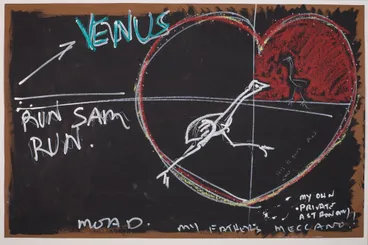 VENUS
RUN SAM
RUN.
MY OWN
PRIVATE
ASTRONOMY!!
MOAD. MY FATHER'S MECCANO.